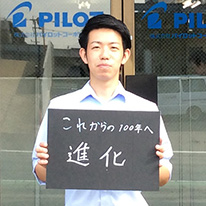 PILOT
PILOT
これからの100年へ
進化